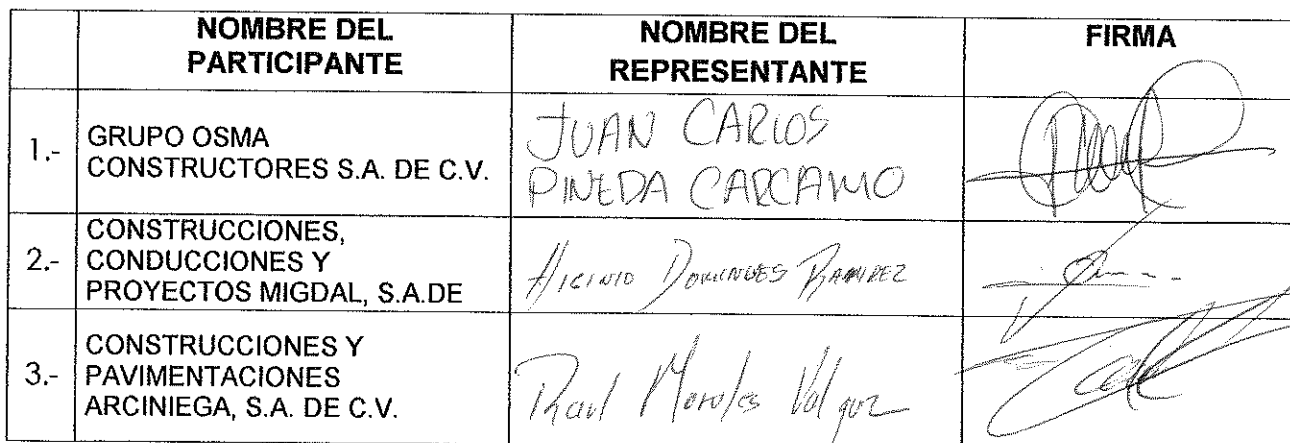 NOMBRE DEL PARTICIPANTE
NOMBRE DEL REPRESENTANTE
FIRMA
1.-
GRUPO OSMA
CONSTRUCTORES S.A. DE C.V.
JUAN CARLOS
PINEDA CARCAMO
2.-
CONSTRUCCIONES,
CONDUCCIONES Y
PROYECTOS MIGDAL, S.A.DE
HIGINIO DOMINGUES RAMIREZ
3.-
CONSTRUCCIONES Y
PAVIMENTACIONES
ARCINIEGA, S.A. DE C.V.
Raul Morales